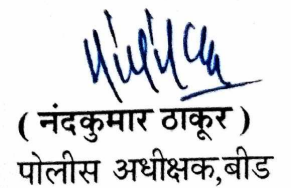 ( नंदकुमार ठाकूर )
पोलीस अधीक्षक,बीड